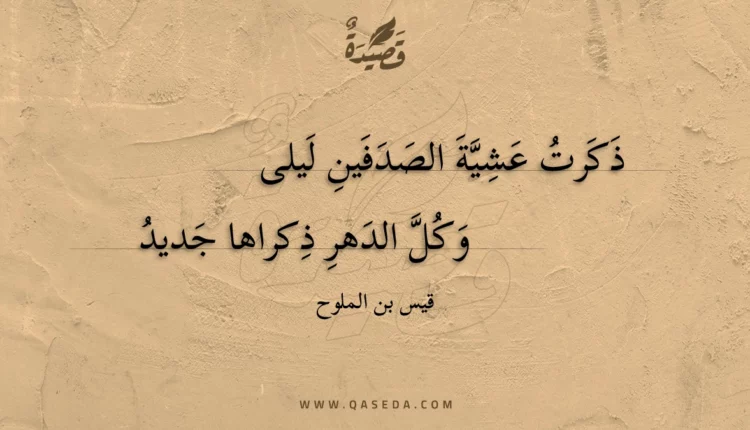 قَصِيْدَةٌ
ذَكَرتُ عَشِيَّةَ الصَدَفَينِ لَيلى
وَكُلَّ الدَهرِ ذِكراها جَديدُ
قيس بن الملوح
WWW.QASEDA.COM